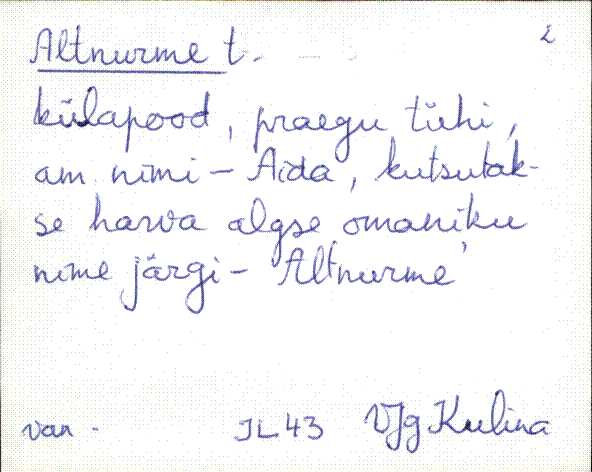 2
Altnurme t.
külapood, praegu tühi,
am. nimi - Aida, kutsutak-
se harva algse omaniku
nime järgi - Altnurme'
van. JL43 VJg Kulina